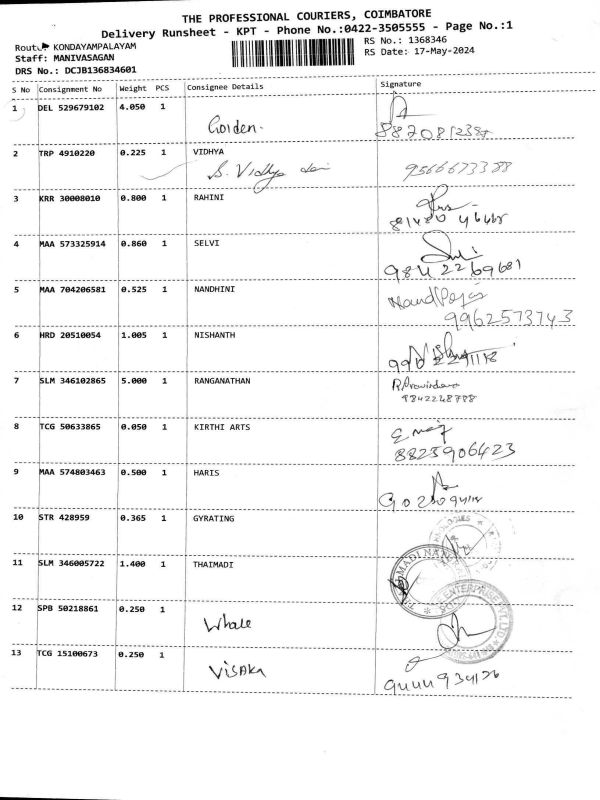 THE PROFESSIONAL COURIERS, COIMBATORE
Delivery Runsheet - KPT - Phone No.:0422-3505555 - Page No.:1
Route: KONDAYAMPALAYAM
RS No.: 1368346
Staff: MANIVASAGAN
RS Date: 17-May-2024
DRS No.: DCJB136834601
S No Consignment No Weight PCS Consignee Details Signature
1 DEL 529679102 4.050 1
Golden.
2 TRP 4910220 0.225 1 VIDHYA
S. Vidhya 9566673388
3 KRR 30008010 0.800 1 RAHINI
4 MAA 573325914 0.860 1 SELVI
9842269681
5 MAA 704206581 0.525 1 NANDHINI
9962573743
6 HRD 20510054 1.005 1 NISHANTH
7 SLM 346102865 5.000 1 RANGANATHAN
9842248788
8 TCG 50633865 0.050 1 KIRTHI ARTS
8825906423
9 MAA 574803463 0.500 1 HARIS
10 STR 428959 0.365 1 GYRATING
11 SLM 346005722 1.400 1 THAIMADI
12 SPB 50218861 0.250 1
ENTERPRISE PVT LTD
Whale
13 TCG 15100673 0.250 1
Visaka